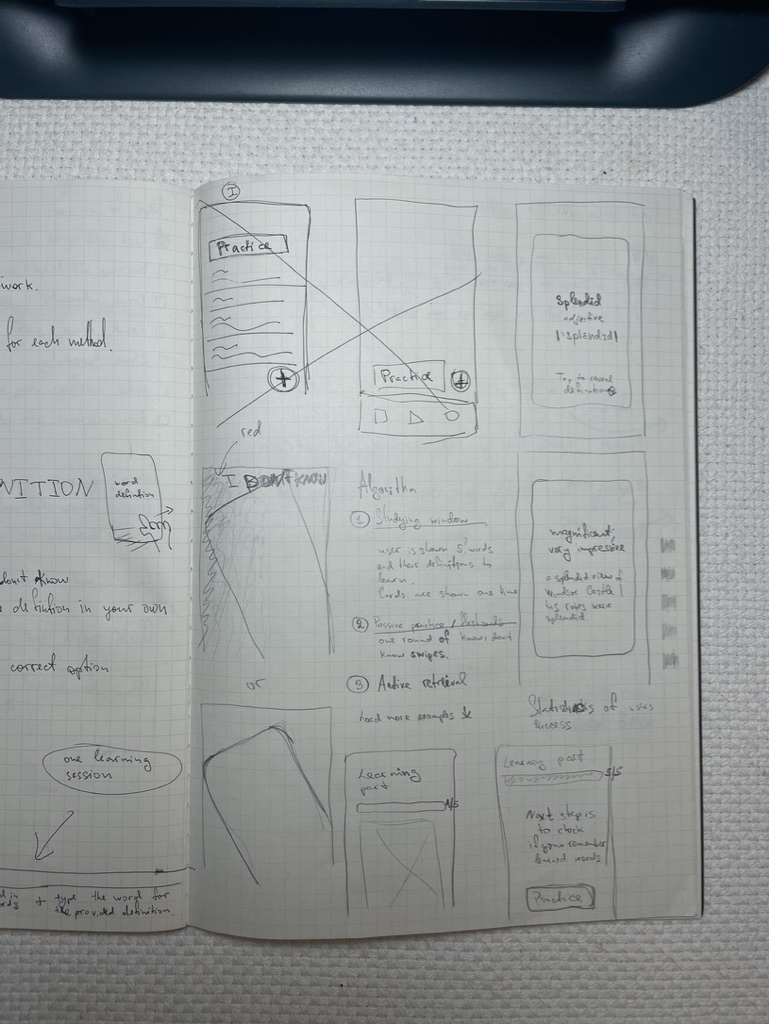 work.
for each method.
NITION
word
definition
don't know
definition in your own
correct option
one learning
session
+ type the word for
the provided definition.
I
Practice
+
Practice
+
Splendid
adjective
|'splendɪd|
Tap to reveal
definition
red
I DON'T KNOW
or
Algorithm
1 Studying window
user is shown 5? words
and their definitions to
learn.
Cards are shown one time
2 Passive practice / flashcards
one round of know/don't
know swipes.
3 Active retrieval
Load more examples
magnificent;
very impressive
a splendid view of
Windsor Castle |
his robes were
splendid
Statistics of users
success
Learning
part
1/5
Learning part
5/5
Next step is
to check
if you remember
learned words
Practice